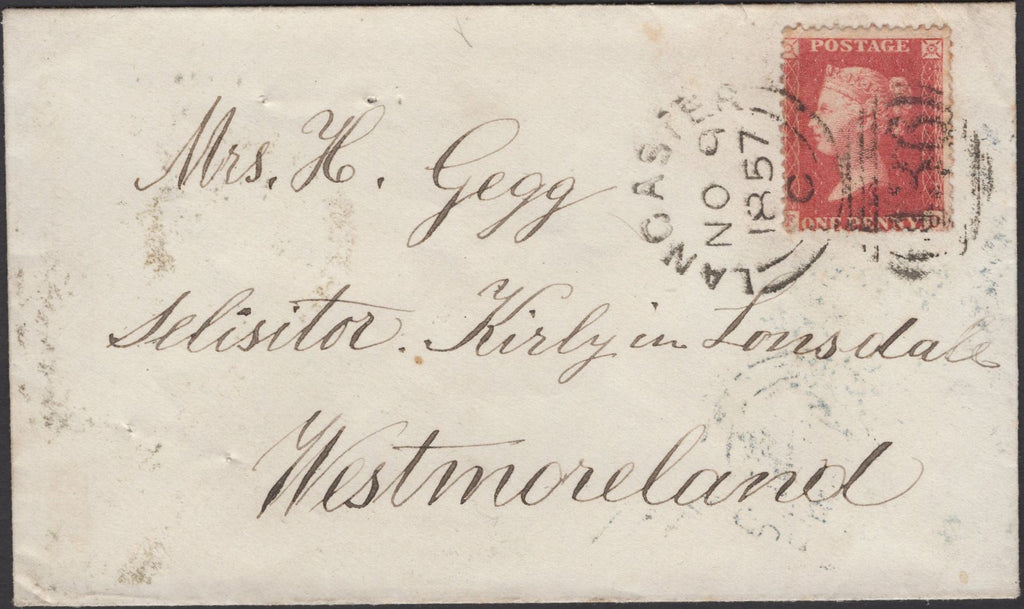 POSTAGE
ONE PENNY
LANCASTER
NO 9
1857
C
Mrs. H. Gegg
Selisitor. Kirly in Lonsdale
Westmoreland